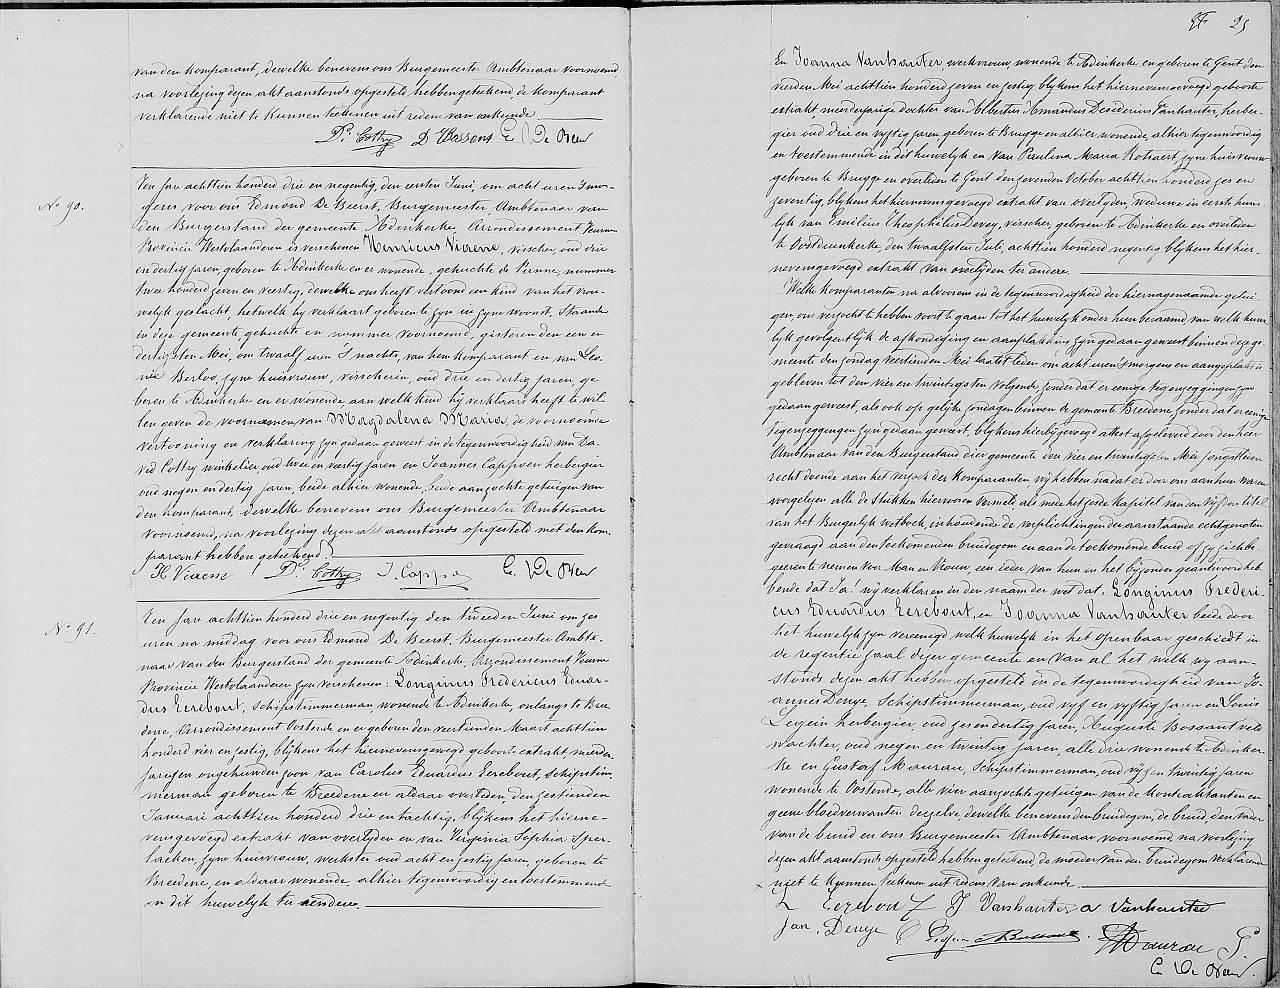 van den komparant, dewelke benevens ons Burgemeester Ambtenaar voornoemd,
na voorlezing dezen akt aanstonds opgesteld hebben geteekend, de komparant
verklarende niet te kunnen teekenen uit reden van onkunde
Dd Cothy D Bossons E. De Beer
No 90.
Ten jare achttien honderd drie en negentig, den eersten Juni, om acht uren 's mor-
gens voor ons Edmond De Beerst, Burgemeester, Ambtenaar van
den Burgerstand der gemeente Adinkerke, Arrondissement Veurne
Provincie Westvlaanderen is verschenen Henricus Vieren, visscher, oud drie
en dertig jaren, geboren te Adinkerke en er wonende, gehuchte de Penne, nummer
twee honderd zeven en veertig, dewelke ons heeft vertoond een kind van het vrou-
welyk geslacht, hetwelk hy verklaart geboren te zyn in zyne woonst, staande
in deze gemeente, gehuchte en nummer voornoemd, gisteren den een en
dertigsten Mei, om twaalf uren 's nachts, van hem komparant en van Leo-
nie Berloo, zyne huisvrouw, visscherin, oud drie en dertig jaren, ge
boren te Adinkerke en er wonende, aan welk kind hy verklaard heeft te wil-
len geven de voornamen van Magdalena Maria, de voornoemde
vertooning en verklaring zyn gedaan geweest in de tegenwoordigheid van Da-
vid Cothy winkelier oud twee en veertig jaren en Joannes Cappoen herbergier
oud negen en dertig jaren, beide alhier wonende, beide aangezochte getuigen van
den komparant, dewelke benevens ons Burgemeester Ambtenaar
voornoemd, na voorlezing dezen akt aanstonds opgesteld met den kom-
parant hebben geteekend
H Vieren Dd Cothy J. Cappoen E. De Beer
No 91.
Ten jare achttien honderd drie en negentig den tweeden Juni om zes
uren na middag voor ons Edmond De Beerst, Burgemeester Ambte-
naar van den Burgerstand der gemeente Adinkerke, Arrondissement Veurne
Provincie Westvlaanderen zyn verschenen: Longinus Fredericus Eduar-
dus Eerebout, Schipstimmerman, wonende te Adinkerke, onlangs te Bree-
dene, Arrondissement Oostende en er geboren den veertienden Maart achttien
honderd vier en zestig, blykens het hiernevensgevoegd geboorte extrakt, minder-
jarigen ongehuwden zoon van Carolus Eduardus Eerebout, Schipstim-
merman geboren te Breedene en aldaar overleden, den zestienden
Januari achttien honderd drie en tachtig, blykens het hierne-
vensgevoegd extrakt van overlyden en van Virginia Sophia Sper-
lacken, zyne huisvrouw, werkster oud acht en zestig jaren, geboren te
Breedene, en aldaar wonende, alhier tegenwoordig en toestemmende
in dit huwelyk ter eenders.
25
En Joanna Vanhauter, werkvrouw, wonende te Adinkerke en geboren te Gent, den
vierden Mei achttien honderd zeven en zestig blykens het hiernevensgevoegd geboorte
extrakt, meerderjarige dochter van Albertus Amandus Desiderius Vanhauter, herber-
gier oud drie en vyftig jaren geboren te Brugge en alhier wonende, alhier tegenwoordig
en toestemmende in dit huwelyk en van Paulina Maria Rotsaert, zyne huisvrouw
geboren te Brugge en overleden te Gent den zevenden October achttien honderd zes en
zeventig, blykens het hiernevensgevoegd extrakt van overlyden, weduwe in eerste huwe-
lyk van Emilius Theophilus Devey, visscher, geboren te Adinkerke en overleden
te Oostduinkerke, den twaalfsten Juli, achttien honderd negentig blykens het hier-
nevensgevoegd extrakt van overlyden ter andere.
Welke komparanten na alvorens in de tegenwoordigheid der hiernagenaamde getui-
gen, ons verzocht te hebben voort te gaan tot het huwelyk onder hun beraamd, van welk huwe-
lyk gevolgentlyk de afkondiging en aanplakking zyn gedaan geweest binnen deze ge-
meente den zondag veertienden Mei laatstleden om acht uren 's morgens en aangeplakt is
gebleven tot den vier en twintigsten volgende, zonder dat er eenige tegenzeggingen zyn
gedaan geweest, als ook op gelyke zondagen binnen de gemeente Breedene zonder dat er eenige
tegenzeggingen zyn gedaan geweest, blykens hierbygevoegd attest afgeleverd door den heer
Ambtenaar van den Burgerstand dier gemeente den vier en twintigsten Mei jongstleden
recht doende aan het verzoek der komparanten, wy hebben nadat er door ons aan hun waren
voorgelezen alle de stukken hierboven vermeld, als mede het zesde kapitel van den vyfden titel
van het Burgerlyk wetboek, inhoudende de verplichtingen der aanstaande echtgenoten
gevraagd aan den toekomenden bruidegom en aan de toekomende bruid of zy zich be-
geeren te nemen voor Man en Vrouw, een ieder van hun in het byzonder geantwoord heb-
bende dat Ja! wy verklaren in den naam der wet dat, Longinus Frederi-
cus Eduardus Eerebout, en Joanna Vanhauter beide door
het huwelyk zyn vereenigd welk huwelyk in het openbaar geschiedt in
de regentie zaal dezer gemeente en van al het welk wy aan-
stonds dezen akt hebben opgesteld in de tegenwoordigheid van Jo-
annes Denye, Schipstimmerman, oud vyf en vyftig jaren en Louis
Legein herbergier, oud zes en dertig jaren, Auguste Bossaut veld
wachter, oud negen en twintig jaren, alle drie wonende te Adinker-
ke en Gustaf Maurau, Schipstimmerman, oud vyf en twintig jaren
wonende te Oostende, alle vier aangezochte getuigen van de kontraktanten en
geene bloedverwanten dezelve, dewelke benevens den bruidegom, de bruid den vader
van de bruid en ons Burgemeester Ambtenaar voornoemd, na voorlezing
dezen akt aanstonds opgesteld hebben geteekend, de moeder van den bruidegom verklarende
niet te kunnen teekenen uit redens van onkunde
L Eerebout J Vanhauter a vanhauter
Jan Denye L Legein A Bossaut Maurau G.
E. De Beer.